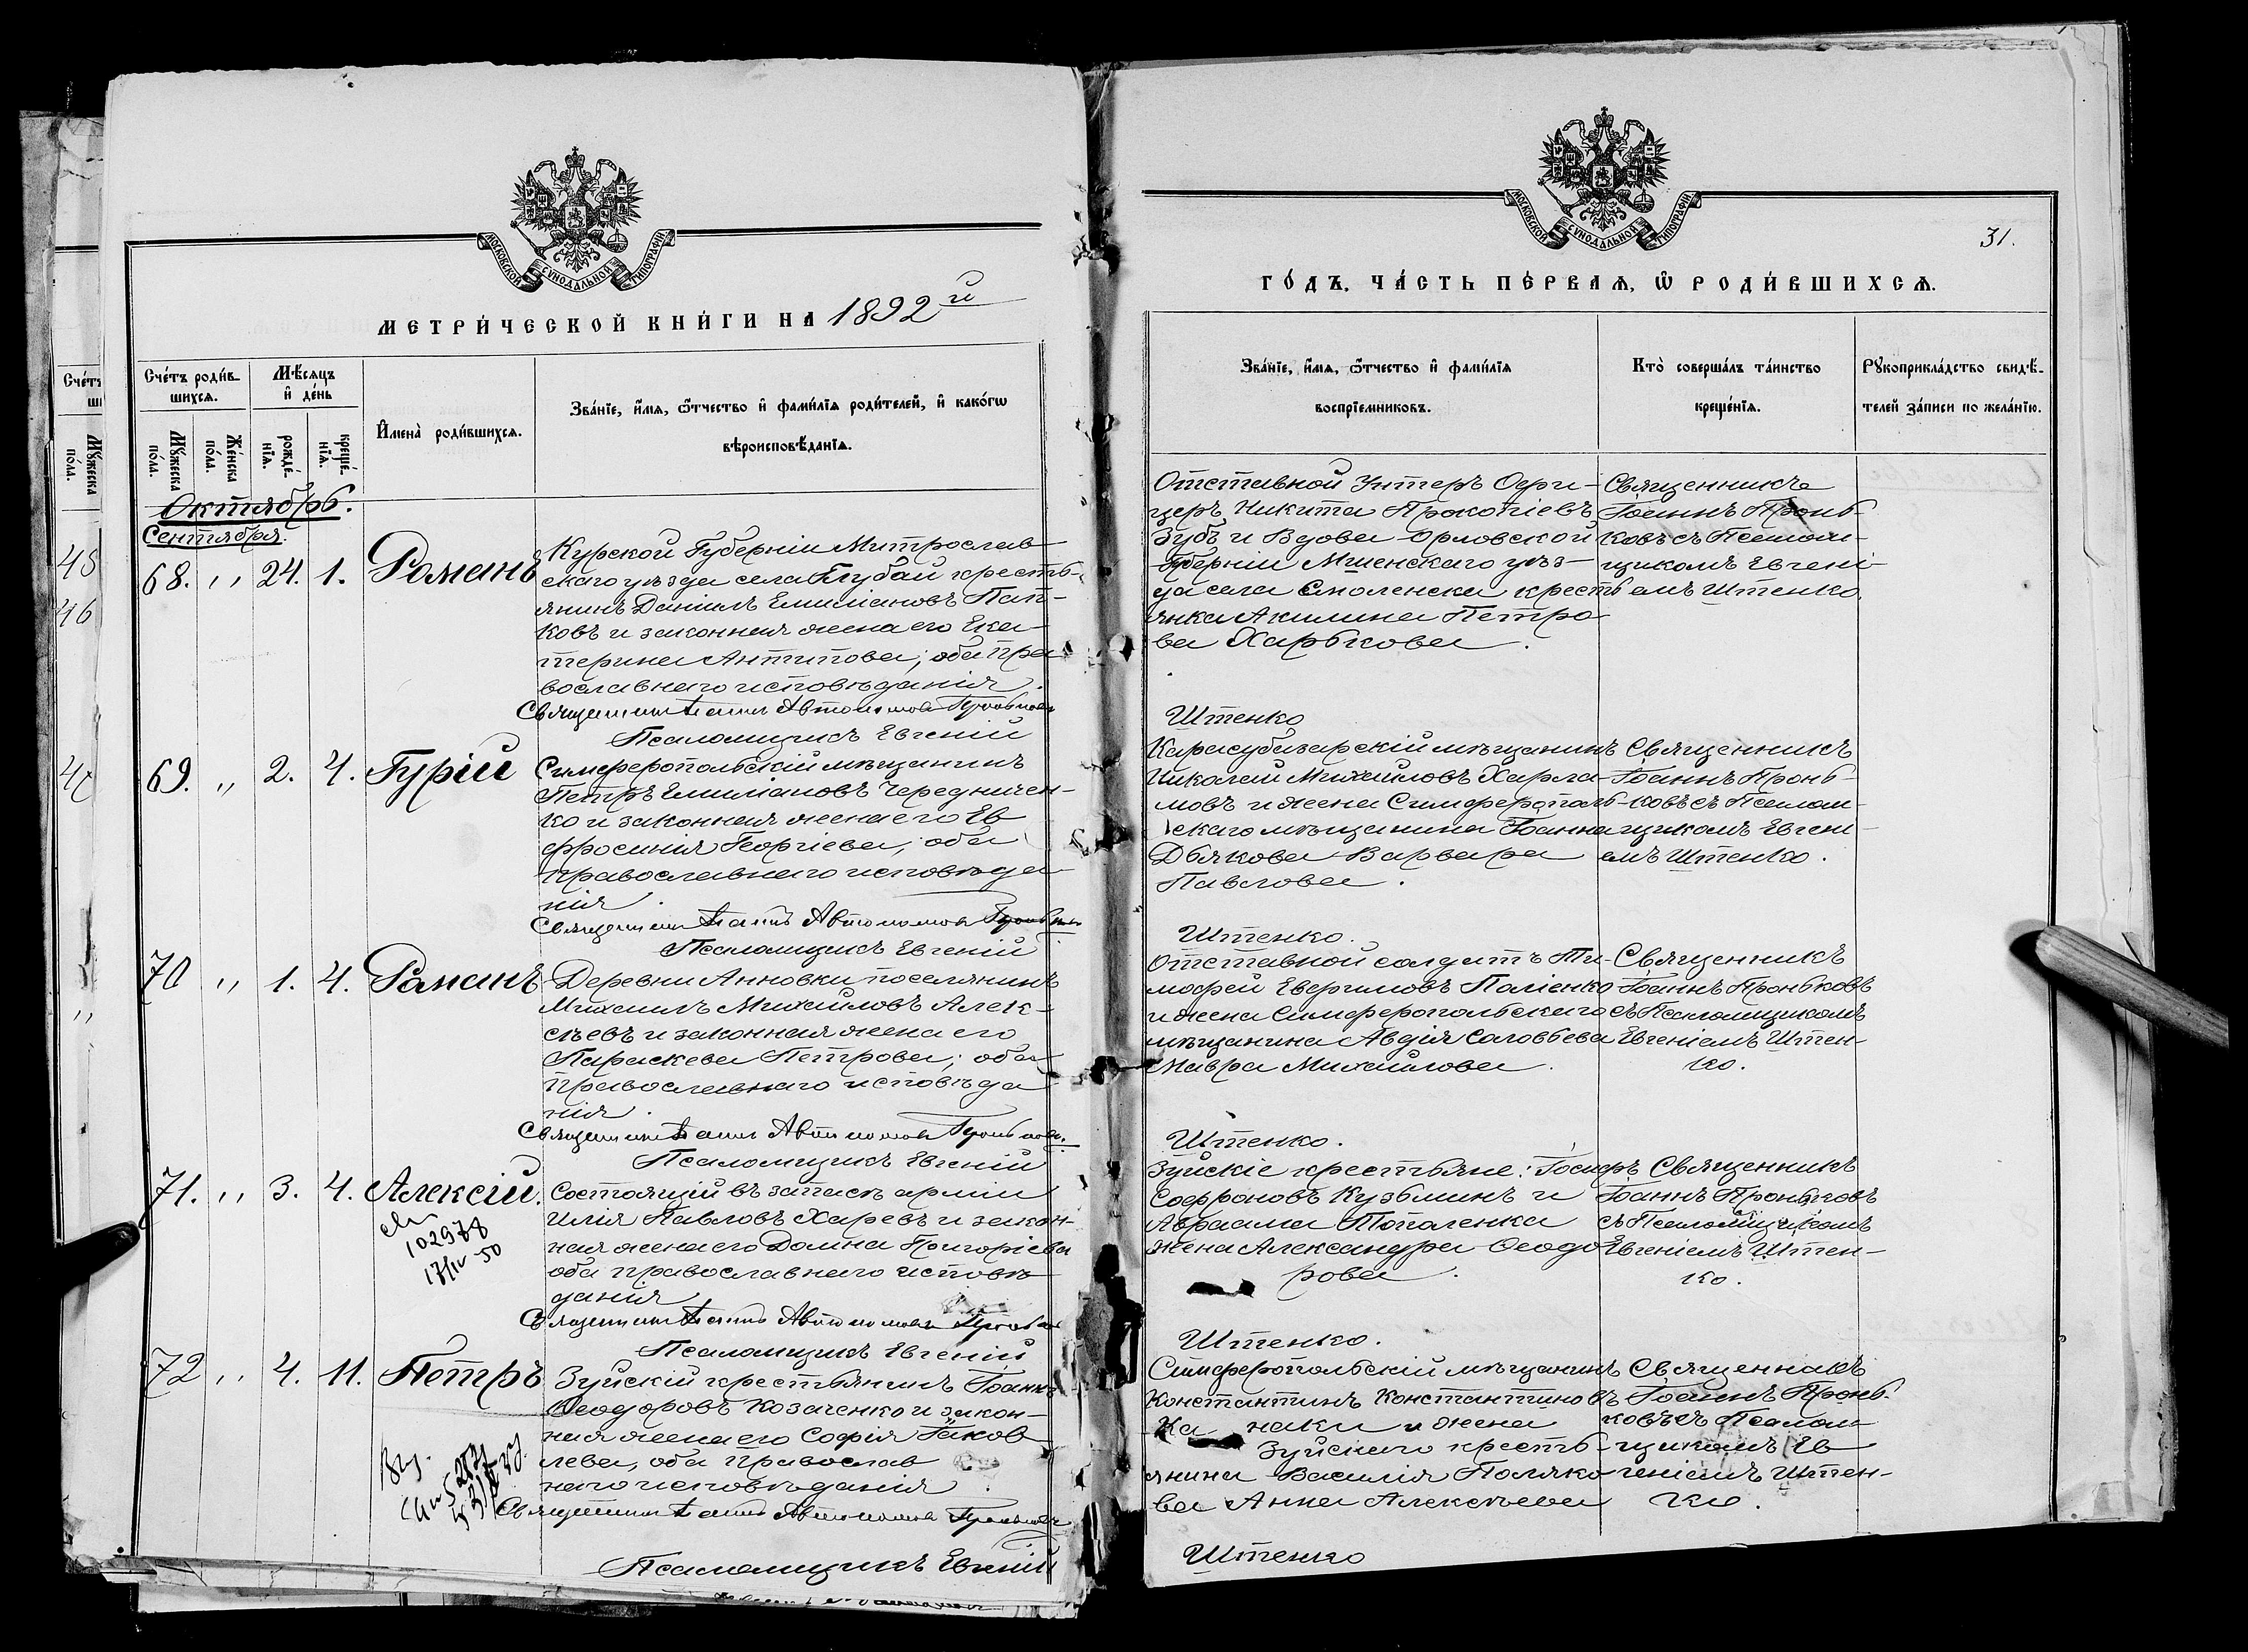 МОСКОВСКОЙ СѴНОДАЛЬНОЙ ТИПОГРАФІИ
МЕТРИ́ЧЕСКОЙ КНИ́ГИ НА 1892й
Сче́тъ роди́вшихсѧ.
Мѣ́сѧцъ и҆ де́нь
И҆мена̀ роди́вшихсѧ.
Зва́нїе, и҆́мѧ, ѻ҆́тчество и҆ фами́лїѧ роди́телей, и҆ како́гѡ
вѣроисповѣ́данїѧ.
Мꙋ́жеска по́ла.
Же́нска по́ла.
рожде́нїѧ.
креще́нїѧ.
Октябрь.
Сентября.
68. " 24. 1. Романъ
Курской Губерніи Митрослав
скаго уѣзда села Глубай кресть-
янинъ Даніилъ Емиліановъ Пап-
ковъ и законная жена его Ека-
терина Антипова; оба пра
вославнаго исповѣданія.
Священникъ Іоаннъ Автономовъ Проньковъ
Псаломщикъ Евгеній
69. " 2. 4. Гурій
Симферопольскій мѣщанинъ
Петръ Емиліановъ Чередничен-
ко и законная жена его Ев
фросинія Георгіева; оба
православнаго исповѣда
нія.
Священникъ Іоаннъ Автономовъ Проньковъ
Псаломщикъ Евгеній
70 " 1. 4. Романъ
Деревни Анновки поселянинъ
Михаилъ Михайловъ Алек-
сѣевъ и законная жена его
Параскева Петрова; оба
православнаго исповѣда
нія.
Священникъ Іоаннъ Автономовъ Проньковъ.
Псаломщикъ Евгеній
71. " 3. 4. Алексій.
102978
17/IV 50
Состоящій въ запасѣ арміи
Илія Павловъ Харевъ и закон-
ная жена его Домна Григоріева
оба православнаго исповѣ
данія
Священникъ Іоаннъ Автономовъ Проньковъ
Псаломщикъ Евгеній
72 " 4. 11. Петръ
Зуйскій крестьянинъ Іоаннъ
Ѳеодоровъ Козаченко и закон-
ная жена его Софія Іаков
лева, оба православ
наго исповѣданія.
Священникъ Іоаннъ Автономовъ Проньковъ
Псаломщикъ Евгеній
МОСКОВСКОЙ СѴНОДАЛЬНОЙ ТИПОГРАФІИ
31.
ГО́ДЪ. ЧА́СТЬ ПЕ́РВАѦ, Ѡ҆ РОДИ́ВШИХСѦ.
Зва́нїе, и҆́мѧ, ѻ҆́тчество и҆ фами́лїѧ
воспрїе́мниковъ.
Кто̀ соверша́лъ та́инство
креще́нїѧ.
Рꙋкоприкла́дство свидѣ́-
телей за́писи по жела́нїю.
Отставной Унтеръ Офи-
церъ Никита Прокопіевъ
Зубъ и Вдова Орловской
Губерніи Мценскаго уѣз-
да села Смоленска кресть
янка Акилина Петро
ва Харькова.
Священникъ
Іоаннъ Пронь-
ковъ съ Псалом-
щикомъ Евгені-
емъ Штенко.
Штенко
Карасубазарскій мѣщанинъ
Николай Михайловъ Харла-
мовъ и жена Симферополь-
скаго мѣщанина Іоанна
Дьякова Варвара
Павлова.
Священникъ
Іоаннъ Пронь-
ковъ съ Псалом-
щикомъ Евгені-
емъ Штенко.
Штенко.
Отставной солдатъ Ти-
мофей Евфимовъ Паліенко
и жена Симферопольскаго
мѣщанина Авдія Соловьева
Мавра Михайлова.
Священникъ
Іоаннъ Проньковъ
съ Псаломщикомъ
Евгеніемъ Штен-
ко.
Штенко.
Зуйскіе крестьяне: Іосифъ
Софроновъ Кузьминъ и
Авраама Топаленка
жена Александра Ѳеодо
рова.
Священникъ
Іоаннъ Проньковъ
съ Псаломщикомъ
Евгеніемъ Штен-
ко.
Штенко.
Симферопольскій мѣщанинъ
Константинъ Константиновъ
Ка наки и жена
Зуйскаго кресть-
янина Василія Поляко-
ва Анна Алексѣева
Священникъ
Іоаннъ Пронь-
ковъ съ Псалом-
щикомъ Ев
геніемъ Штен-
ко.
Штенко